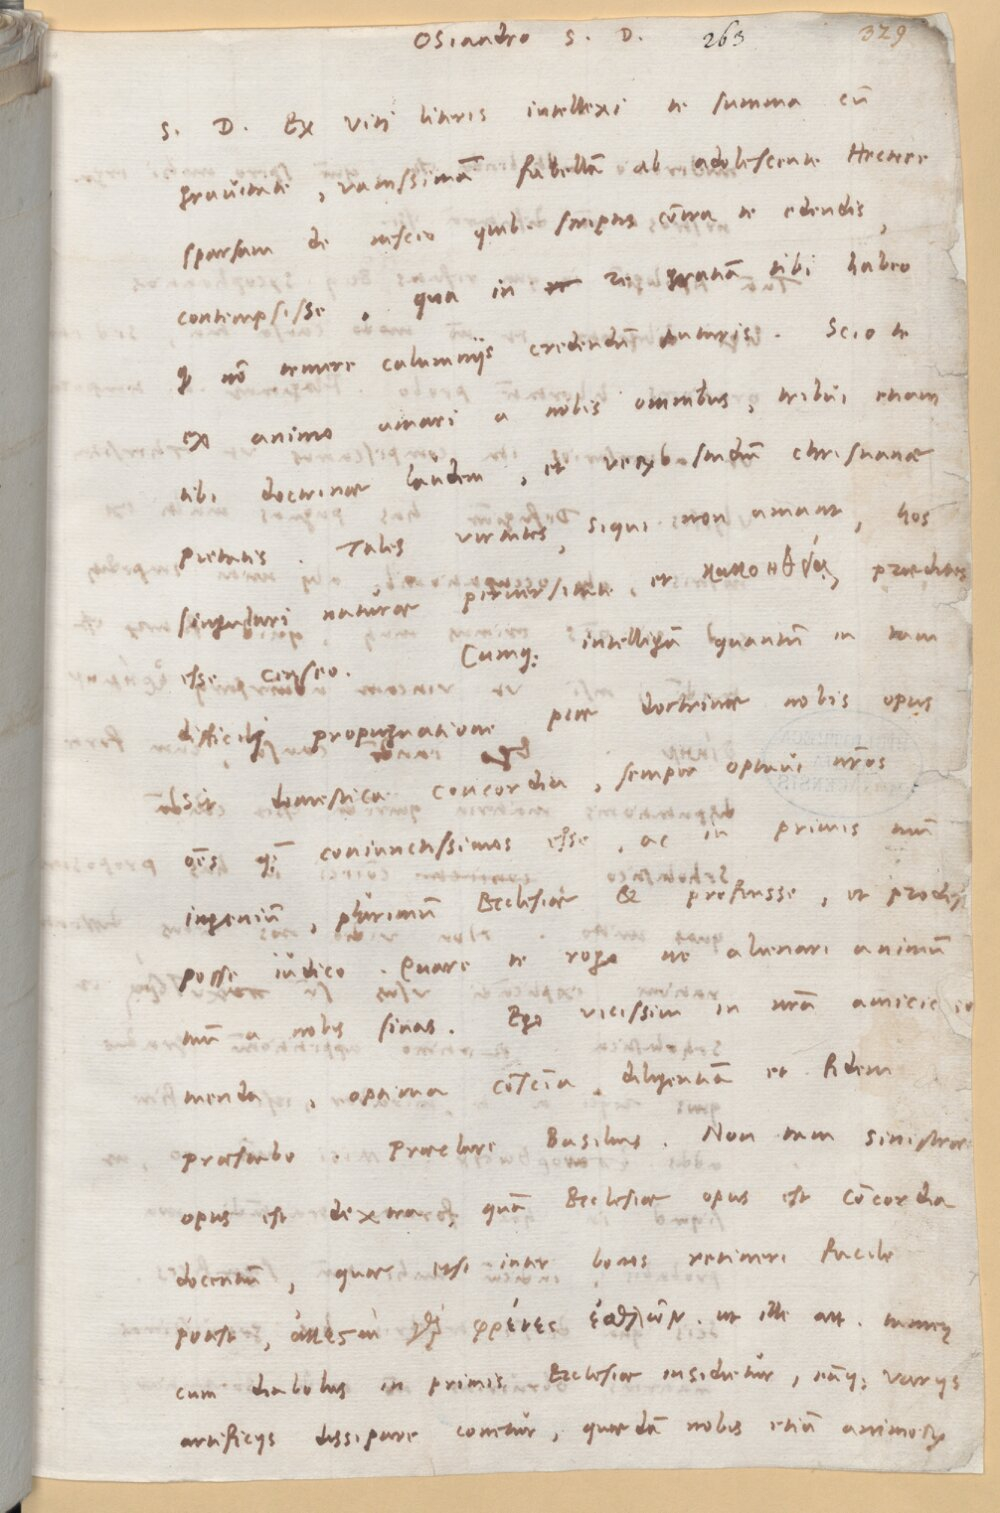 Osiandro S. D. 263 329
S. D. Ex Viti literis intellexi te summa cū
grauitate, vanissimā fabellā ab adolescente Hectore
sparsam de nescio quib. scriptis cōtra te edendis,
contempsisse. qua in re gratiā tibi habeo
qꝫ nō temere calumnijs credendū putaris. Scio te
ex animo amari a nobis omnibus, tribui etiam
tibi doctrinae laudem, et studiū christianae
pietatis. Tales virtutes, siqui non amant, hos
singulari naturae peruersitate, et praeditos
esse censeo. Cumqꝫ intelligā quantū in tam
difficili propugnatione piae doctrinae nobis opus
sit domestica concordia, semper optaui nr̄os
oēs coniunctissimos esse, ac in primis tuū
ingeniū, plurimū Ecclesiae & profuisse, et prodesse
posse iudico. Quare te rogo ne alienari animū
tuū a nobis sinas. Ego vicissim in nr̄a amicicia
tuenda, optima cōsciā, diligentiā et fidem
praestabo. Praeclare Basilius. Non tam sinistrae
opus est dextra, quā Ecclesiae opus est cōcordia
docentiū, quae etsi inter bonos retineri facile
potest, φρένες ἐσθλῶν. ut ille ait. tamen
cum diabolus in primis Ecclesiae insidietur, eāqꝫ varijs
artificijs dissipare conetur, quaedā nobis etiā